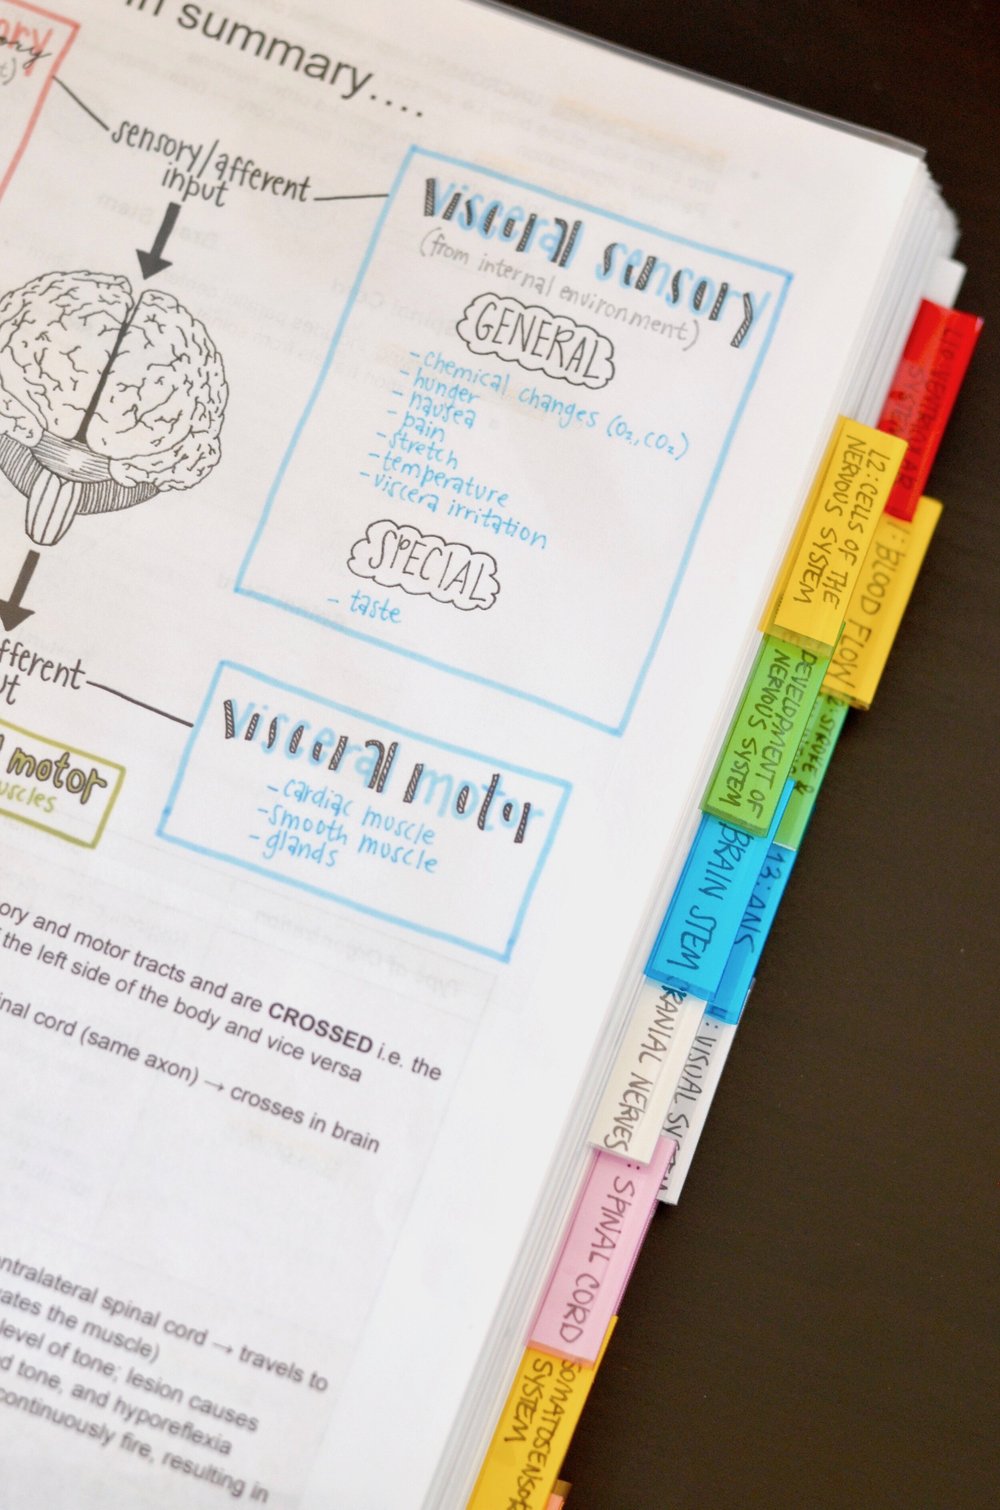 in summary....
sensory/afferent
input
visceral sensory
(from internal environment)
GENERAL
- chemical changes (O₂, CO₂)
- hunger
- nausea
- pain
- stretch
- temperature
- viscera irritation
SPECIAL
- taste
visceral motor
- cardiac muscle
- smooth muscle
- glands
motor
and motor tracts and are CROSSED i.e. the
the left side of the body and vice versa
cord (same axon) → crosses in brain
spinal cord → travels to
the muscle)
level of tone; lesion causes
tone, and hyporeflexia
continuously fire, resulting in
VENTRICULAR
SYSTEM
L2: CELLS OF THE
NERVOUS SYSTEM
1: BLOOD FLOW
DEVELOPMENT OF
NERVOUS SYSTEM
2: STROKE &
BRAIN STEM
13: ANS
NERVES
: VISUAL
: SPINAL CORD
SYSTEM